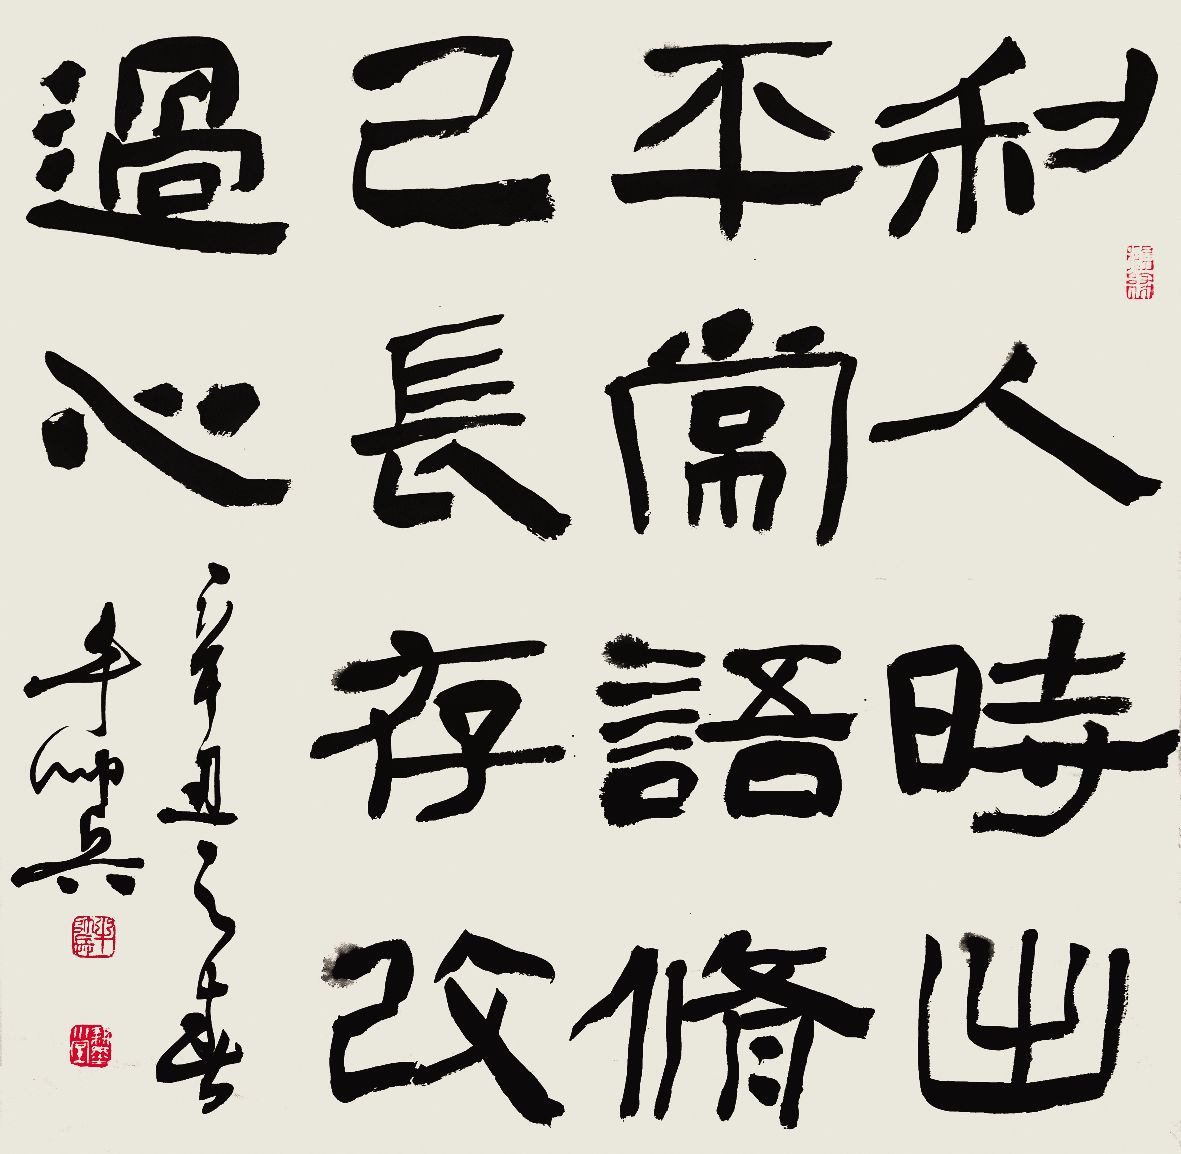 利人時出
平常語脩
己長存改
過心
辛丑之春
牛帥兵